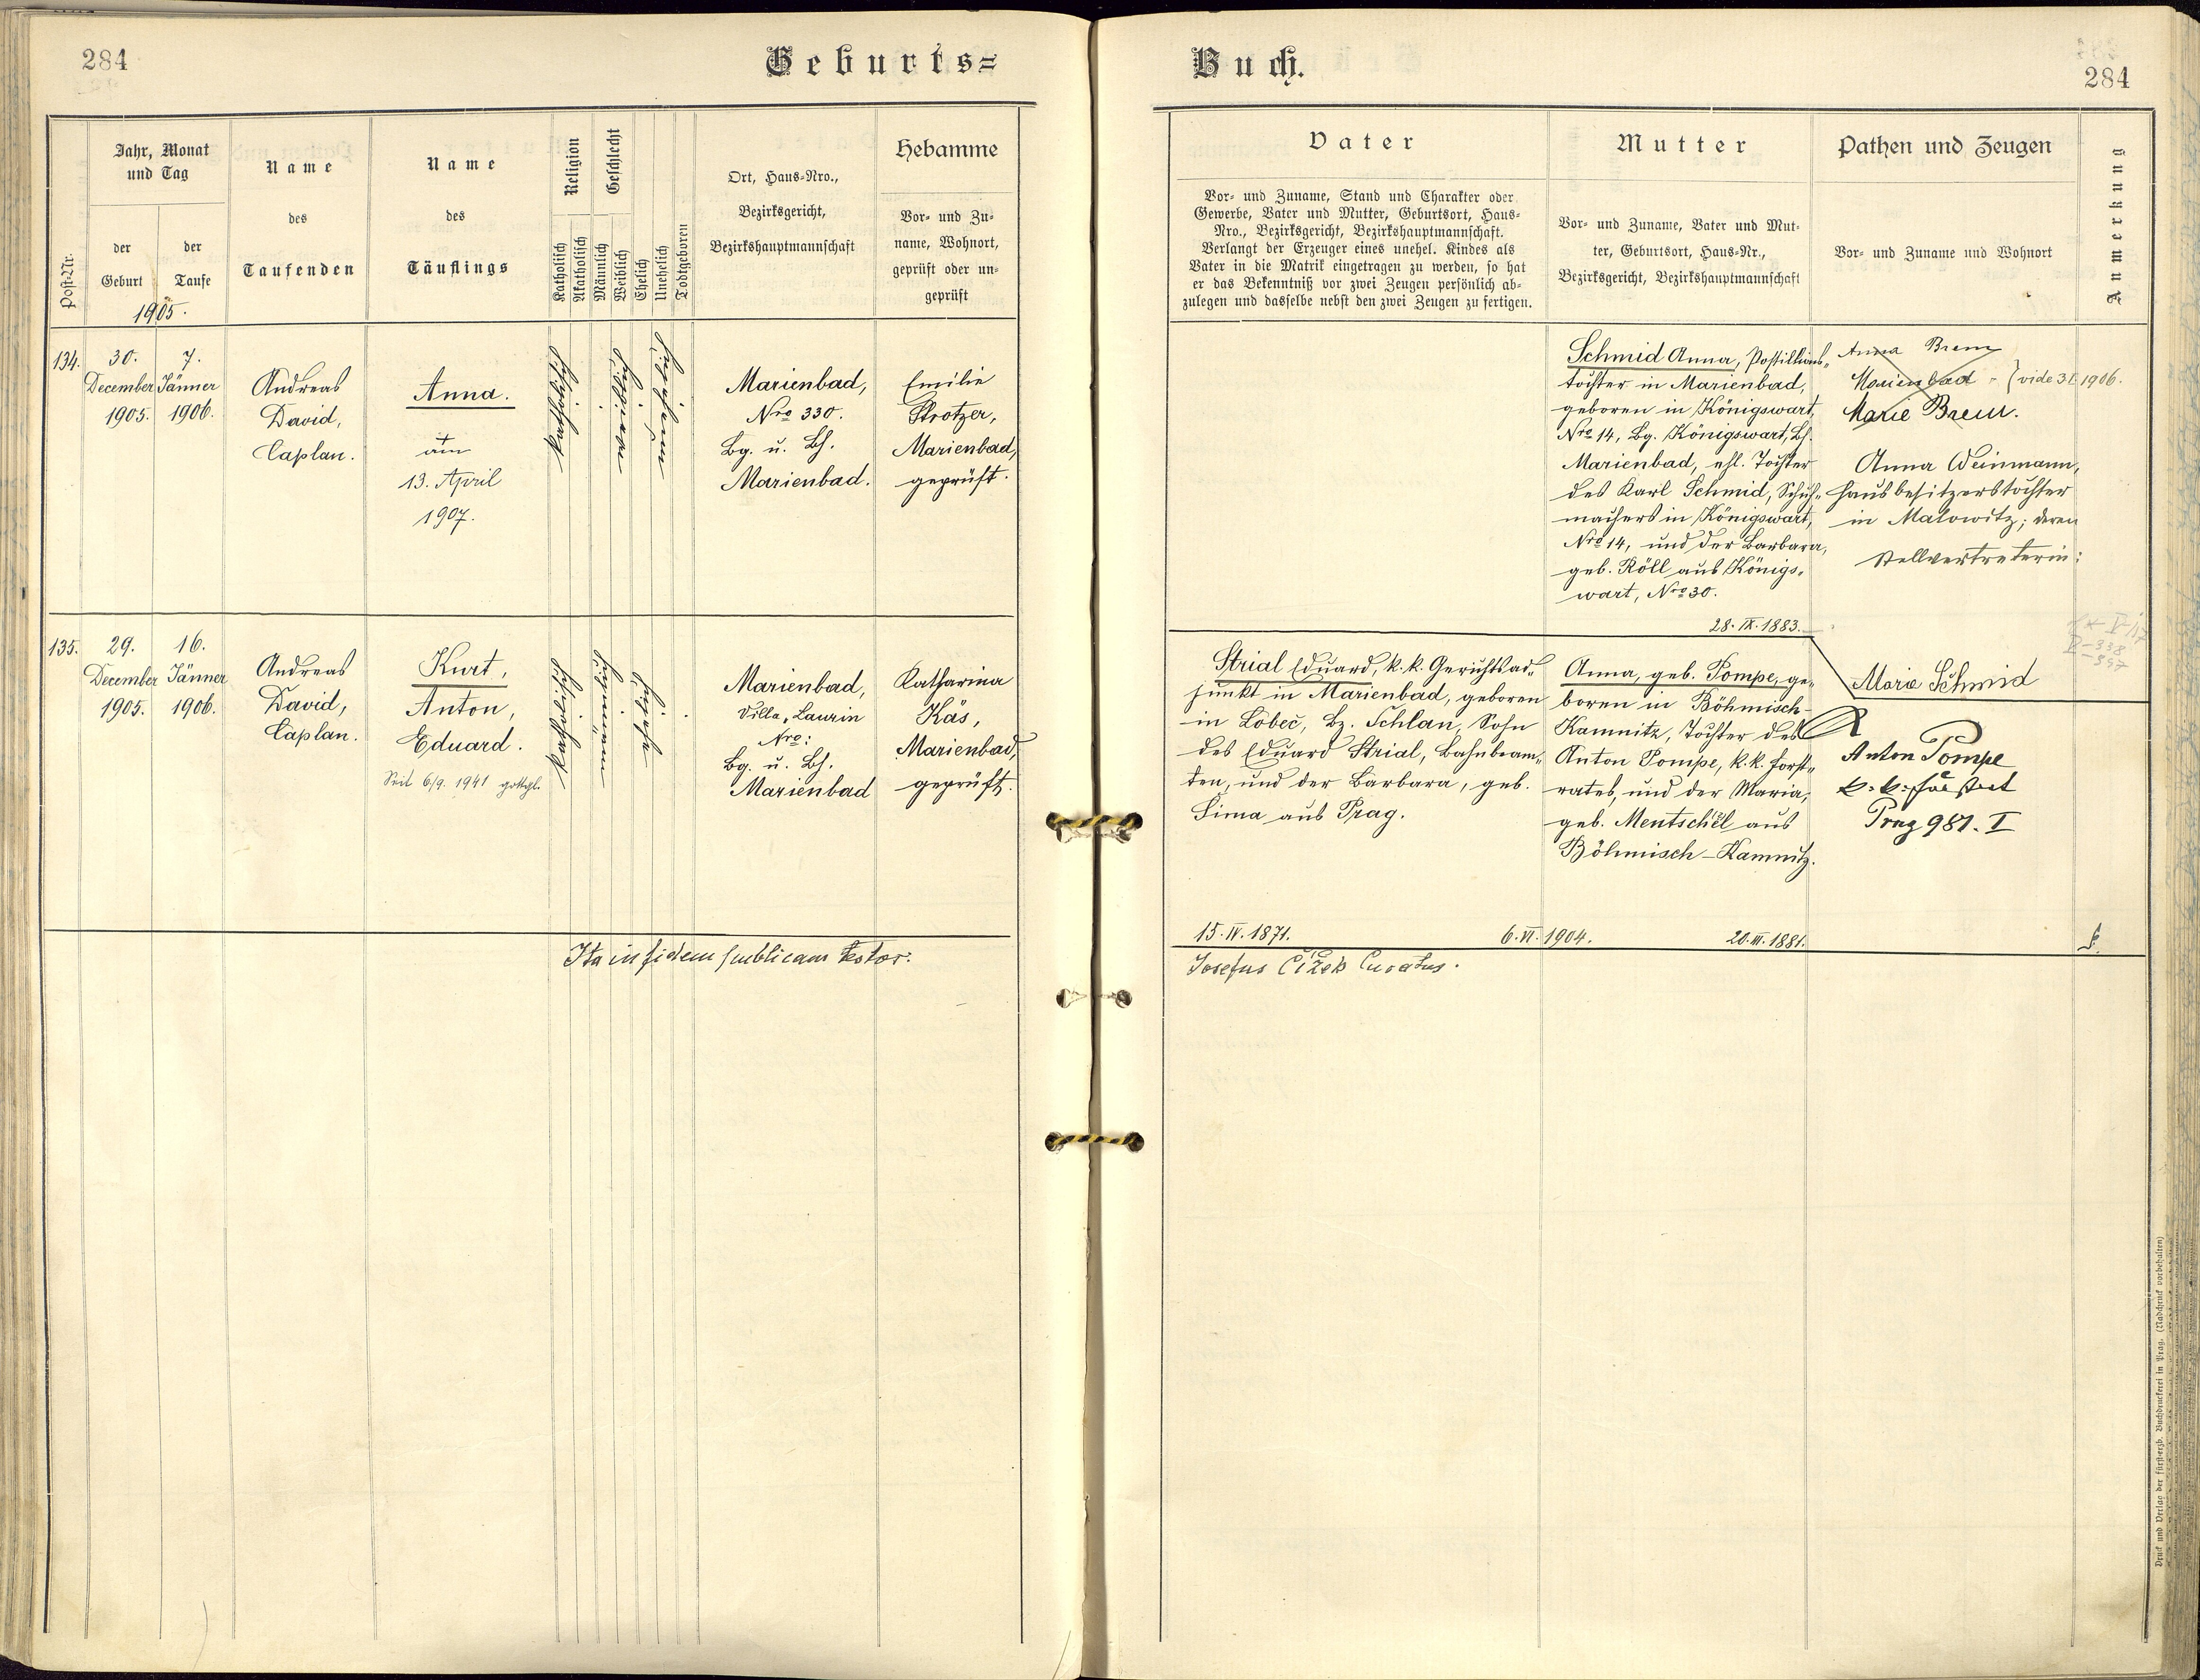 284
Geburts=
Buch.
284
Post-Nr.
Jahr, Monat
und Tag
der
Geburt
der
Taufe
1905.
Name
des
Taufenden
Name
des
Täuflings
Religion
Katholisch
Akatholisch
Geschlecht
Männlich
Weiblich
Ehelich
Unehelich
Todtgeboren
Ort, Haus-Nro.,
Bezirksgericht,
Bezirkshauptmannschaft
Hebamme
Vor- und Zu-
name, Wohnort,
geprüft oder un-
geprüft
Vater
Vor- und Zuname, Stand und Charakter oder
Gewerbe, Vater und Mutter, Geburtsort, Haus-
Nro., Bezirksgericht, Bezirkshauptmannschaft.
Verlangt der Erzeuger eines unehel. Kindes als
Vater in die Matrik eingetragen zu werden, so hat
er das Bekenntniß vor zwei Zeugen persönlich ab-
zulegen und dasselbe nebst den zwei Zeugen zu fertigen.
Mutter
Vor- und Zuname, Vater und Mut-
ter, Geburtsort, Haus-Nr.,
Bezirksgericht, Bezirkshauptmannschaft
Pathen und Zeugen
Vor- und Zuname und Wohnort
Anmerkung
134.
30.
December
1905.
7.
Jänner
1906.
Andreas
David,
Caplan.
Anna.
† am
13. April
1907.
katholisch
weiblich
unehelich
Marienbad,
Nro 330.
Bg. u. Bh.
Marienbad.
Emilie
Strotzer,
Marienbad,
geprüft.
Schmid Anna, Postillions-
tochter in Marienbad,
geboren in Königswart,
Nro 14, Bg. Königswart, Bh.
Marienbad, ehl. Tochter
des Karl Schmid, Schuh-
machers in Königswart,
Nro 14, und der Barbara,
geb. Röll aus Königs-
wart, Nro 30.
28. IX. 1883.
Anna Brem
Marienbad
vide 3 I 1906.
Marie Brem.
Anna Weinmann,
Hausbesitzerstochter
in Malowitz; deren
Stellvertreterin:
Marie Schmid
135.
29.
December
1905.
16.
Jänner
1906.
Andreas
David,
Caplan.
Kurt,
Anton,
Eduard.
Seit 6/9. 1941 gottgl.
katholisch
männlich
ehelich
Marienbad,
Villa "Laurin
Nro:
Bg. u. Bh.
Marienbad
Katharina
Käs,
Marienbad,
geprüft.
Strial Eduard, k. k. Gerichtsad-
junkt in Marienbad, geboren
in Lobeč, Bz. Schlan, Sohn
des Eduard Strial, Bahnbeam-
ten, und der Barbara, geb.
Sima aus Prag.
15. IV. 1871.
6. VI. 1904.
Anna, geb. Pompe, ge-
boren in Böhmisch-
Kamnitz, Tochter des
Anton Pompe, k. k. Forst-
rates, und der Maria,
geb. Mentschel aus
Böhmisch-Kamnitz.
20. III. 1881.
Anton Pompe
Prag 981. I
Ita in fidem publicam testor:
Josefus Čižek Curatus.
Druck und Verlag der fürsterzb. Buchdruckerei in Prag. (Nachdruck vorbehalten)